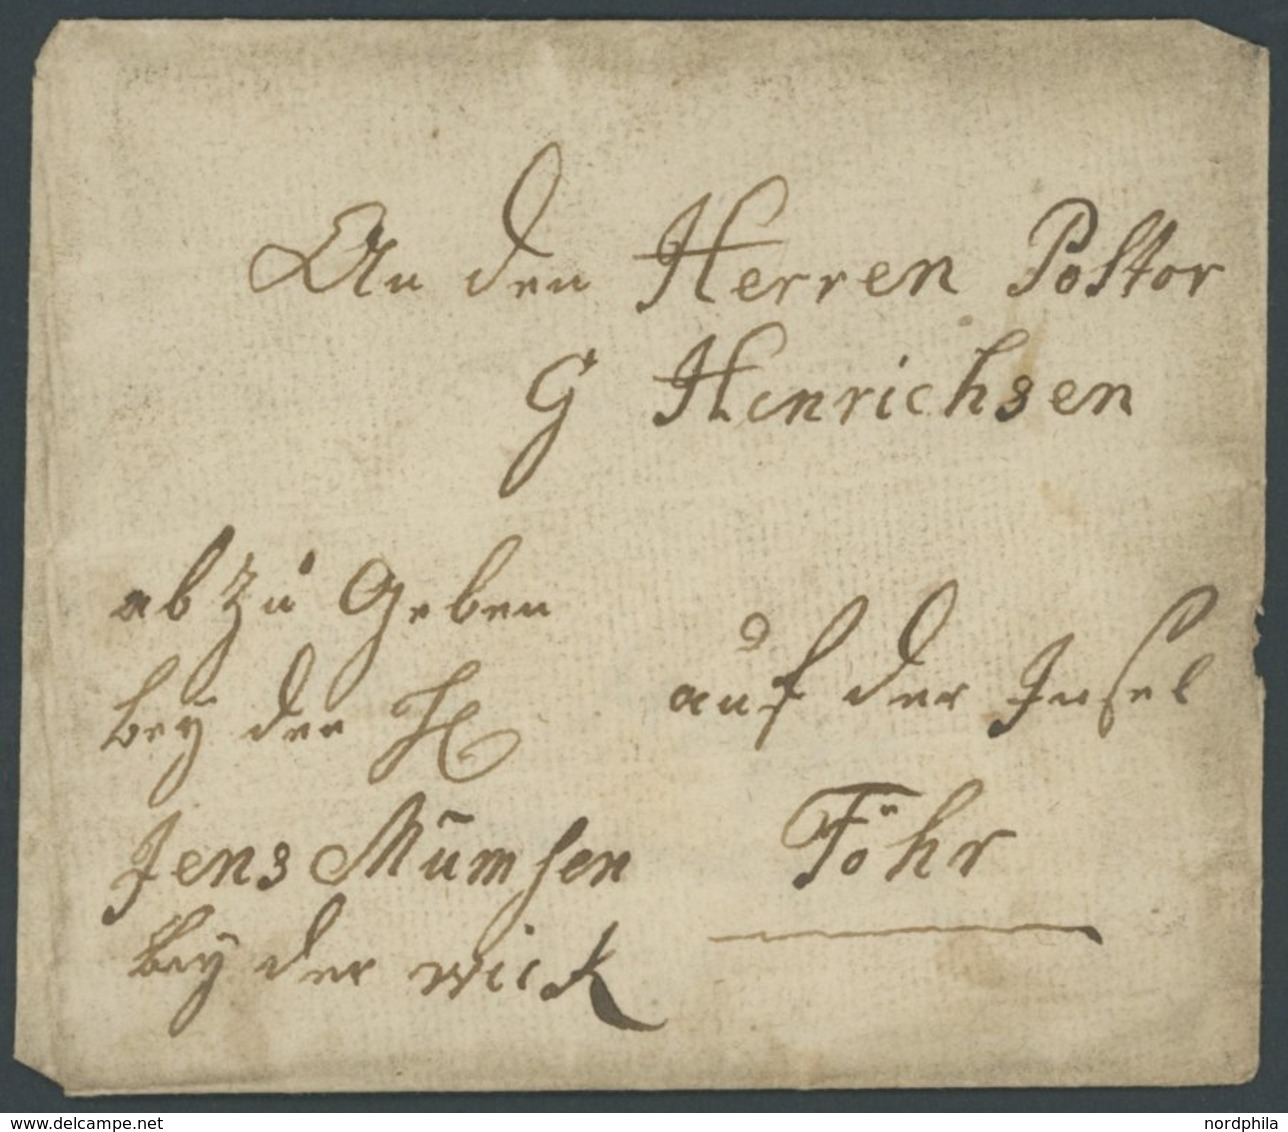 An den Herren Postor
G Henrichsen
ab zu Geben
bey der H
Jens Mumsen
bey der wick
auf der Insel
Föhr
www.delcampe.net
nordphila